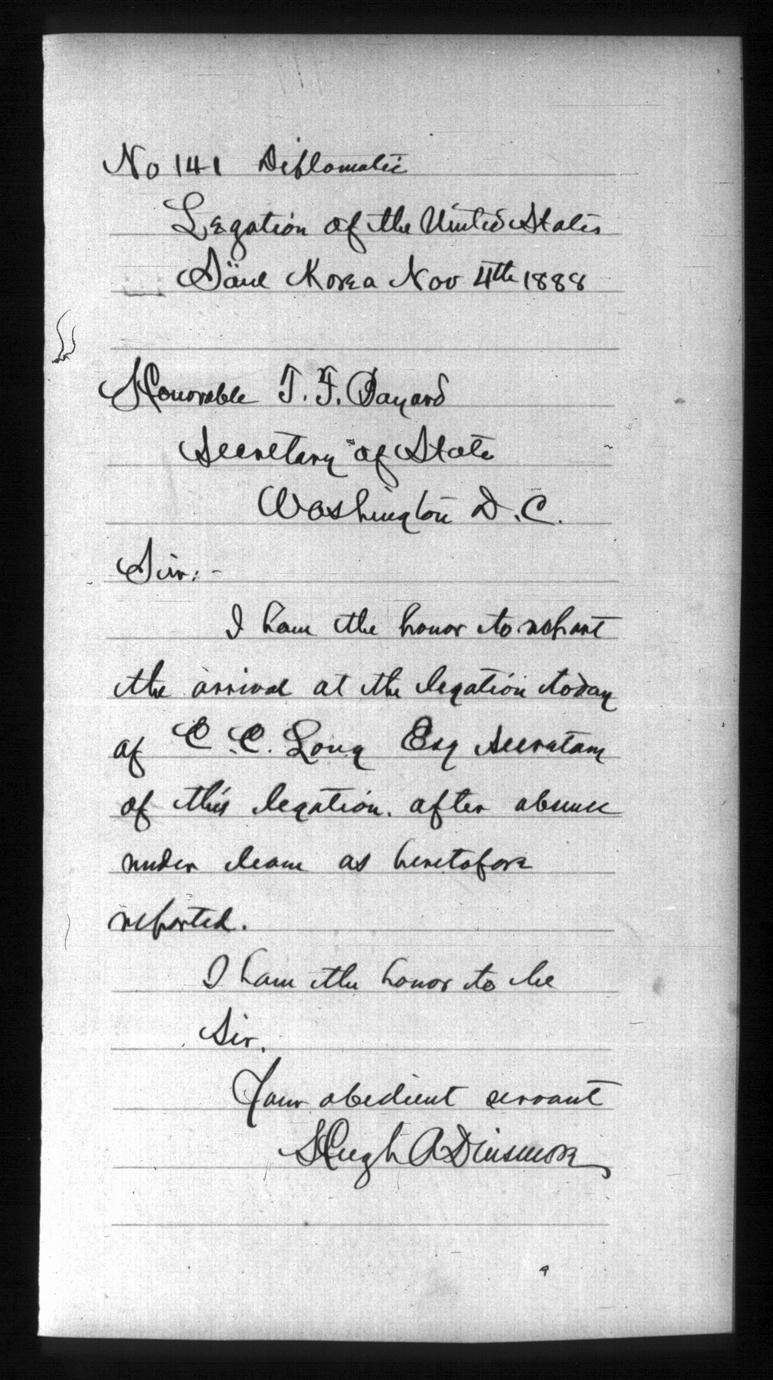 No 141 Diplomatic
Legation of the United States
Söul Korea Nov 4th 1888
Honorable T. F. Bayard
Secretary of State
Washington D.C.
Sir:-
I have the honor to report
the arrival at the legation today
of C. C. Long Esq Secretary
of this legation. after absence
under leave as heretofore
reported.
I have the honor to be
Sir.
Your obedient servant
Hugh A Dinsmore